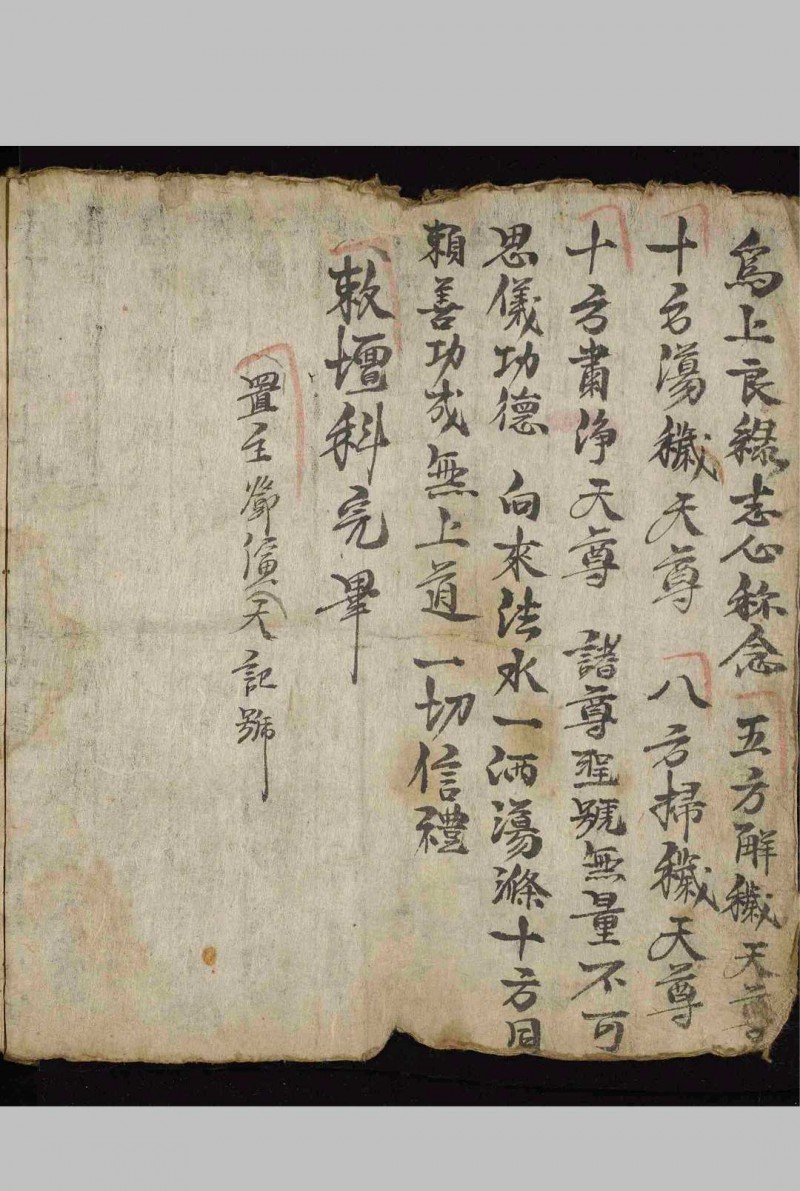 為上良緣志心称念 五方解穢天尊
十方蕩穢天尊 八方掃穢天尊
十方肅淨天尊 諸尊聖號無量不可
思儀功德 向來法水一洒蕩滌十方同
賴善功成無上道一切信禮
敕壇科完畢
置主鄧演天記號